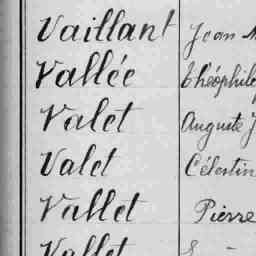 Vaillant Jean
Vallée Théophile
Valet Auguste J
Valet Célestin
Vallet Pierre
Vallet